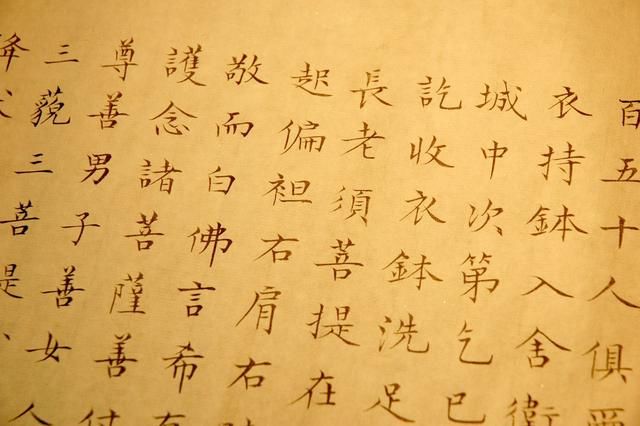 百五十人俱
衣持鉢入舍衛
城中次第乞已
訖收衣鉢洗足
長老須菩提在
起偏袒右肩右
敬而白佛言希有
護念諸菩薩善付
尊善男子善女人
三藐三菩提